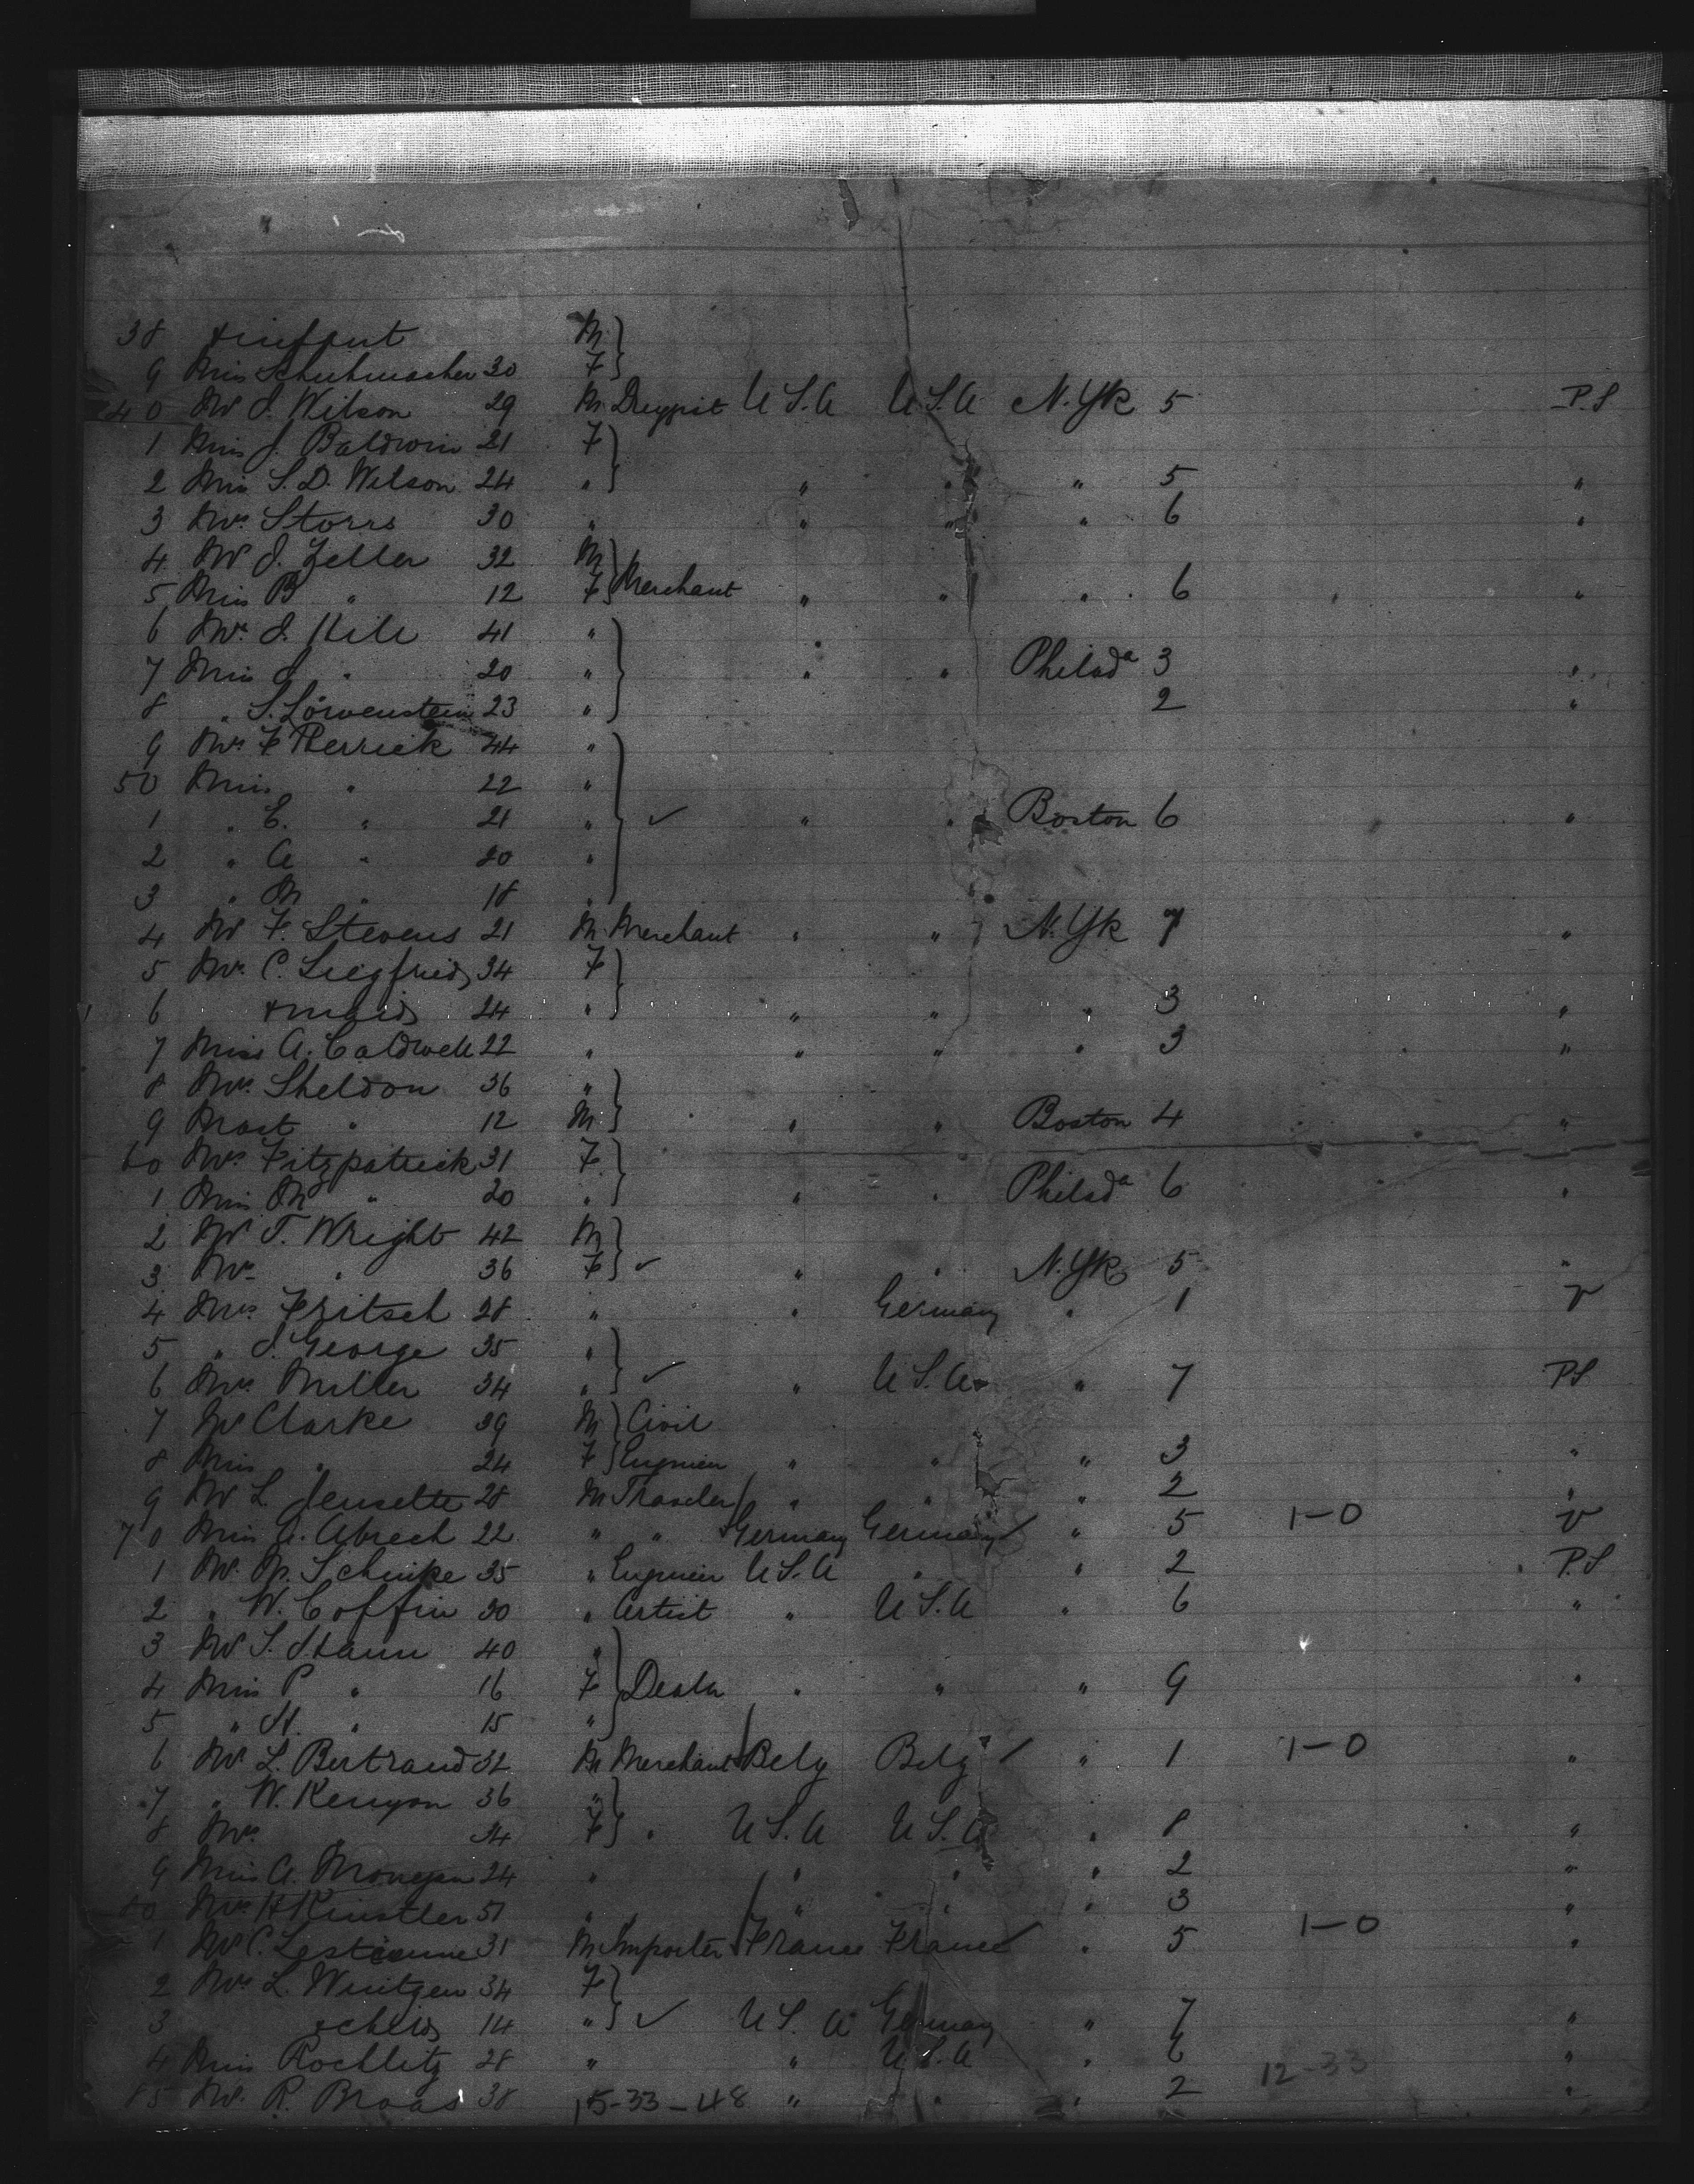 38 & infant M
9 Miss Schuhmacher 30 F
40 Mr J. Wilson 29 M U.S.A U.S.A N.Yk 5 P.S
1 Miss J. Baldwin 21 F
2 Miss S. D. Wilson 24 " " " " 5 "
3 Mrs Storrs 30 " " " " 6 "
4 Mr J. Zeller 32 M
5 Miss B " 12 F Merchant " " " 6 "
6 Mrs J. Hill 41 " "
7 Miss J " 20 " " " Philada 3 "
8 " S. Löwenstein 23 " 2 "
9 Mrs F Herrick 44 "
50 Miss " 22 "
1 " E. " 21 " ✓ " " Boston 6 "
2 " A " 20 "
3 " M " 18 "
4 Mr F. Stevens 21 M Merchant " " N.Yk 7 "
5 Mrs C. Siegfried 34 F
6 & maid 24 " " " " 3 "
7 Miss A. Caldwell 22 " " " " 3 "
8 Mrs Sheldon 36 "
9 Mast " 12 M " " Boston 4 "
60 Mrs Fitzpatrick 31 F
1 Miss M " 20 " " " Philada 6 "
2 Mr T. Wright 42 M
3 Mrs " 36 F ✓ " " N.Yk 5 "
4 Mrs Fritsch 28 " " Germany " 1 V
5 " J. George 35 "
6 Mrs Miller 34 " ✓ " U.S.A " 7 P.S
7 Mr Clarke 39 M Civil
8 Miss " 24 F Engineer " " " 3 "
9 Mr L. 28 M Traveler " " " 2 "
70 Miss A. Abrech 22 " " Germany Germany ✓ " 5 1-0 V
1 Mr M. Schinke 35 " Engineer U.S.A " " 2 P.S
2 " W. Coffin 30 " Artist " U.S.A " 6 "
3 Mr S. Stann 40 "
4 Miss P " 16 F Dealer " " " 9 "
5 " H. " 15 "
6 Mr L. Bertrand 32 M Merchant Belg Belg ✓ " 1 1-0 "
7 " W. Kenyon 36 "
8 Mrs 34 F " U.S.A U.S.A " 8 "
9 Miss A. 24 " " " " 2 "
80 Mrs H Kinstler 51 " " " " 3 "
1 Mr C. Lestienne 31 M Importer France France ✓ " 5 1-0 "
2 Mrs L. Wintgen 34 F
3 & child 14 " ✓ U.S.A Germany " 7 "
4 Miss Rochlitz 28 " " U.S.A " 6 "
85 Mr. R. Braas 38 15-33-48 " " " 2 12-33 "